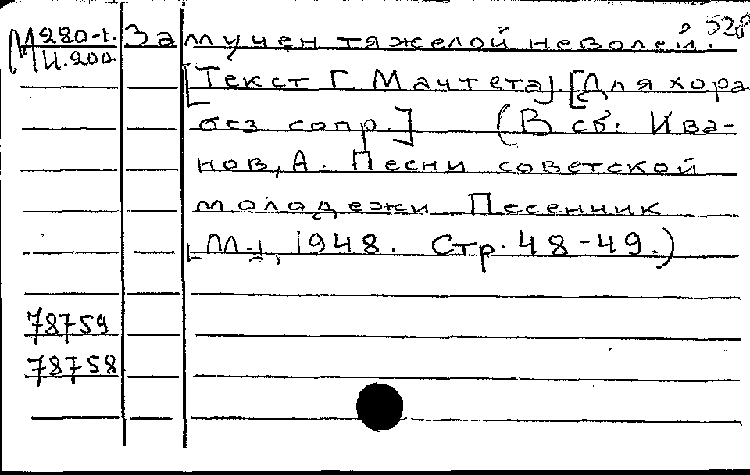 528
М 280-1. Замучен тяжелой неволей.
М 4.200 [Текст Г. Мачтета]. [Для хора
без сопр.] (В сб. Ива-
нов, А. Песни советской
молодежи Песенник
[М.], 1948. Стр. 48-49.)
78759
78758